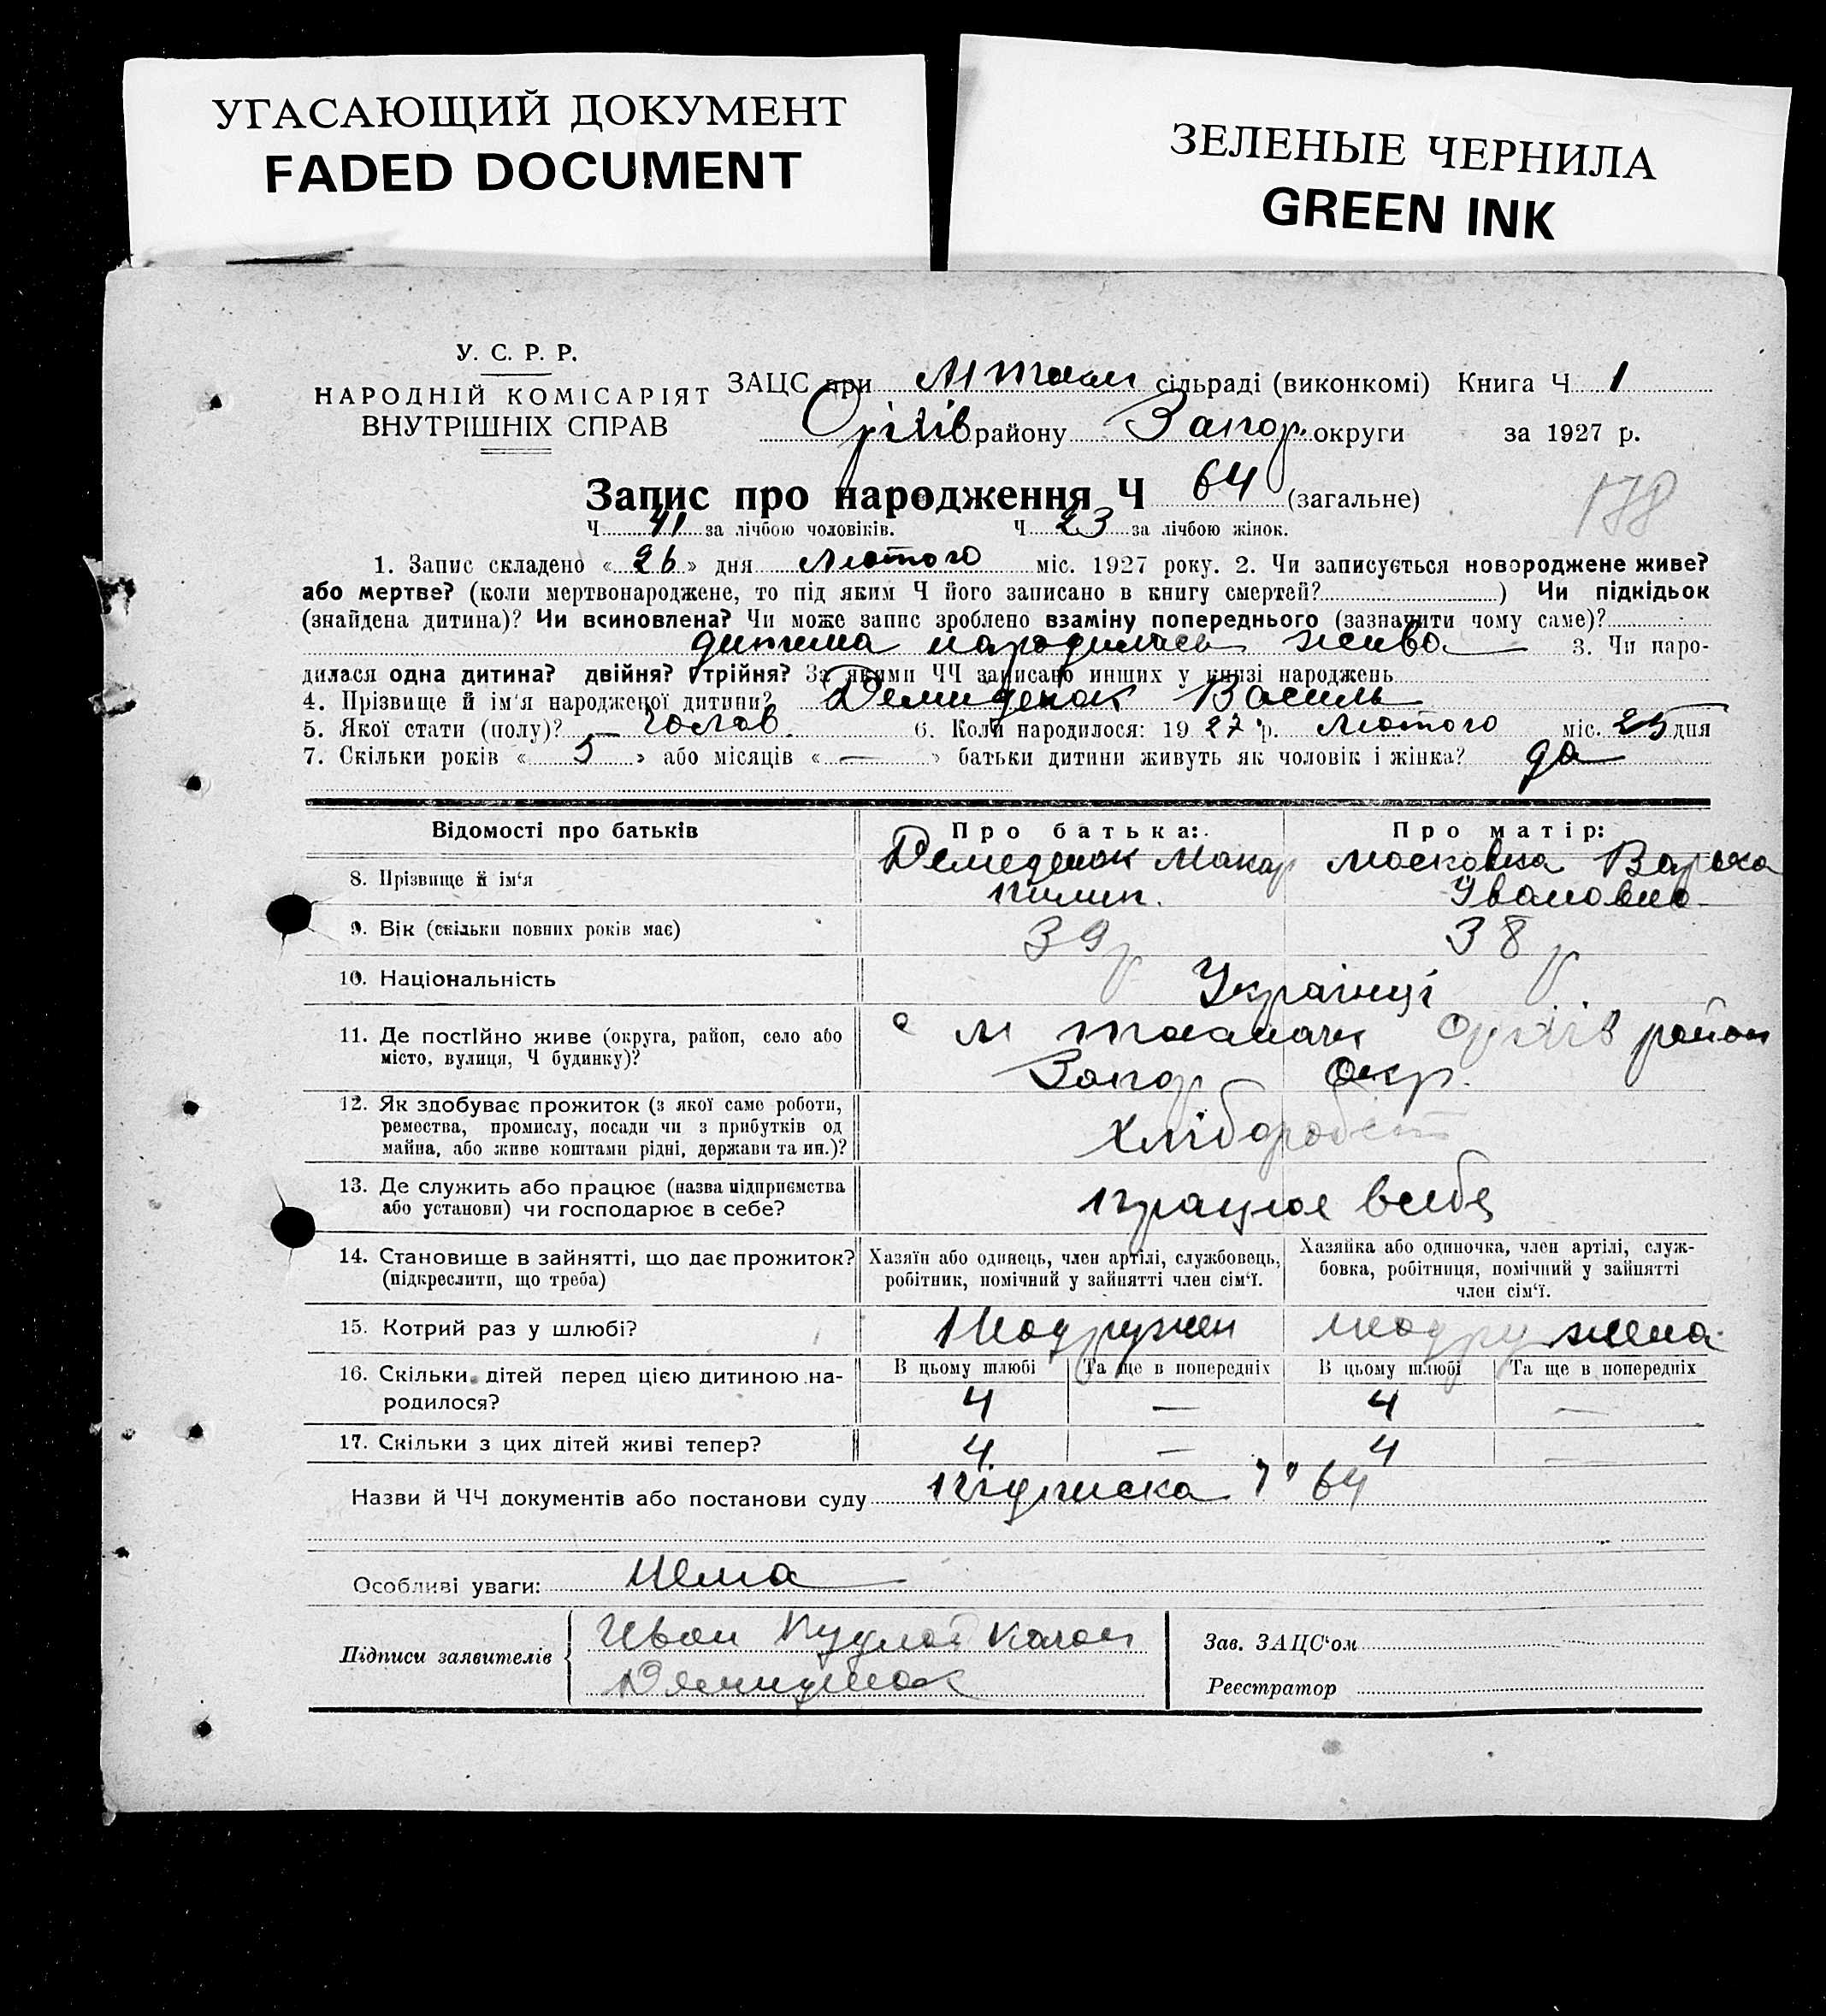 УГАСАЮЩИЙ ДОКУМЕНТ
FADED DOCUMENT
ЗЕЛЕНЫЕ ЧЕРНИЛА
GREEN INK
У. С. Р. Р.
НАРОДНІЙ КОМІСАРІЯТ
ВНУТРІШНІХ СПРАВ
ЗАЦС при М Токм сільраді (виконкомі) Книга Ч 1
Оріхів району Запор. округи за 1927 р.
Запис про народження Ч 64 (загальне)
178
Ч 41 за лічбою чоловіків. Ч 23 за лічбою жінок.
1. Запис складено « 26 » дня Лютого міс. 1927 року. 2. Чи записується новороджене живе?
або мертве? (коли мертвонароджене, то під яким Ч його записано в книгу смертей? ) Чи підкідьок
(знайдена дитина)? Чи всиновлена? Чи може запис зроблено взаміну попереднього (зазначити чому саме)?
дитина народилась жива 3. Чи наро-
дилася одна дитина? двійня? трійня? За якими ЧЧ записано инших у книзі народжень
4. Прізвище й ім'я народженої дитини? Демиденок Василь
5. Якої стати (полу)? — чолов. 6. Коли народилося: 19 27 р. Лютого міс. 25 дня
7. Скільки років « 5 » або місяців « — » батьки дитини живуть як чоловік і жінка? да
Відомості про батьків Про батька: Про матір:
8. Прізвище й ім'я Демеденок Макар Московка Варька
Пилип. Івановна
9. Вік (скільки повних років має) 39 р 38 р
10. Національність Українці
11. Де постійно живе (округа, район, село або
місто, вулиця, Ч будинку)?
с М Оріхів район
Запор Окр.
12. Як здобуває прожиток (з якої саме роботи,
ремества, промислу, посади чи з прибутків од
майна, або живе коштами рідні, держави та ин.)?
Хлібороб
13. Де служить або працює (назва підприємства
або установи) чи господарює в себе?
працює всебе
14. Становище в зайнятті, що дає прожиток?
(підкреслити, що треба)
Хазяїн або одинець, член артілі, службовець,
робітник, помічний у зайнятті член сім'ї.
Хазяйка або одиночка, член артілі, служ-
бовка, робітниця, помічний у зайнятті
член сім'ї.
15. Котрий раз у шлюбі?
16. Скільки дітей перед цією дитиною на-
родилося?
В цьому шлюбі Та ще в попередніх В цьому шлюбі Та ще в попередніх
4 — 4 —
17. Скільки з цих дітей живі тепер? 4 — 4 —
Назви й ЧЧ документів або постанови суду Підписка 64
Особливі уваги: Нема
Підписи заявителів
Иван
Демиденок
Зав. ЗАЦС'ом
Реєстратор